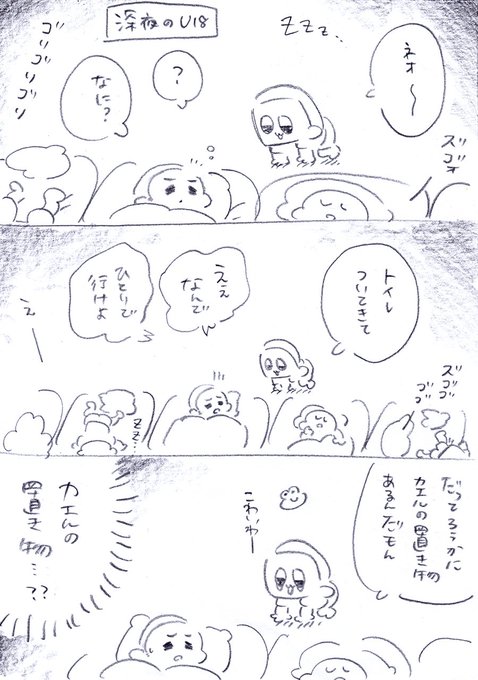 深夜のU18
ネオ〜
zzz..
?
なに?
ゴリゴリゴリ
ズゴォ
トイレ
ついてきて
ええ
なんで
ひとりで
行けよ
えー
ズゴゴゴゴ
zz...
だってろうかに
カエルの置き物
あるんだもん
こわいわー
カエルの
置き物…??